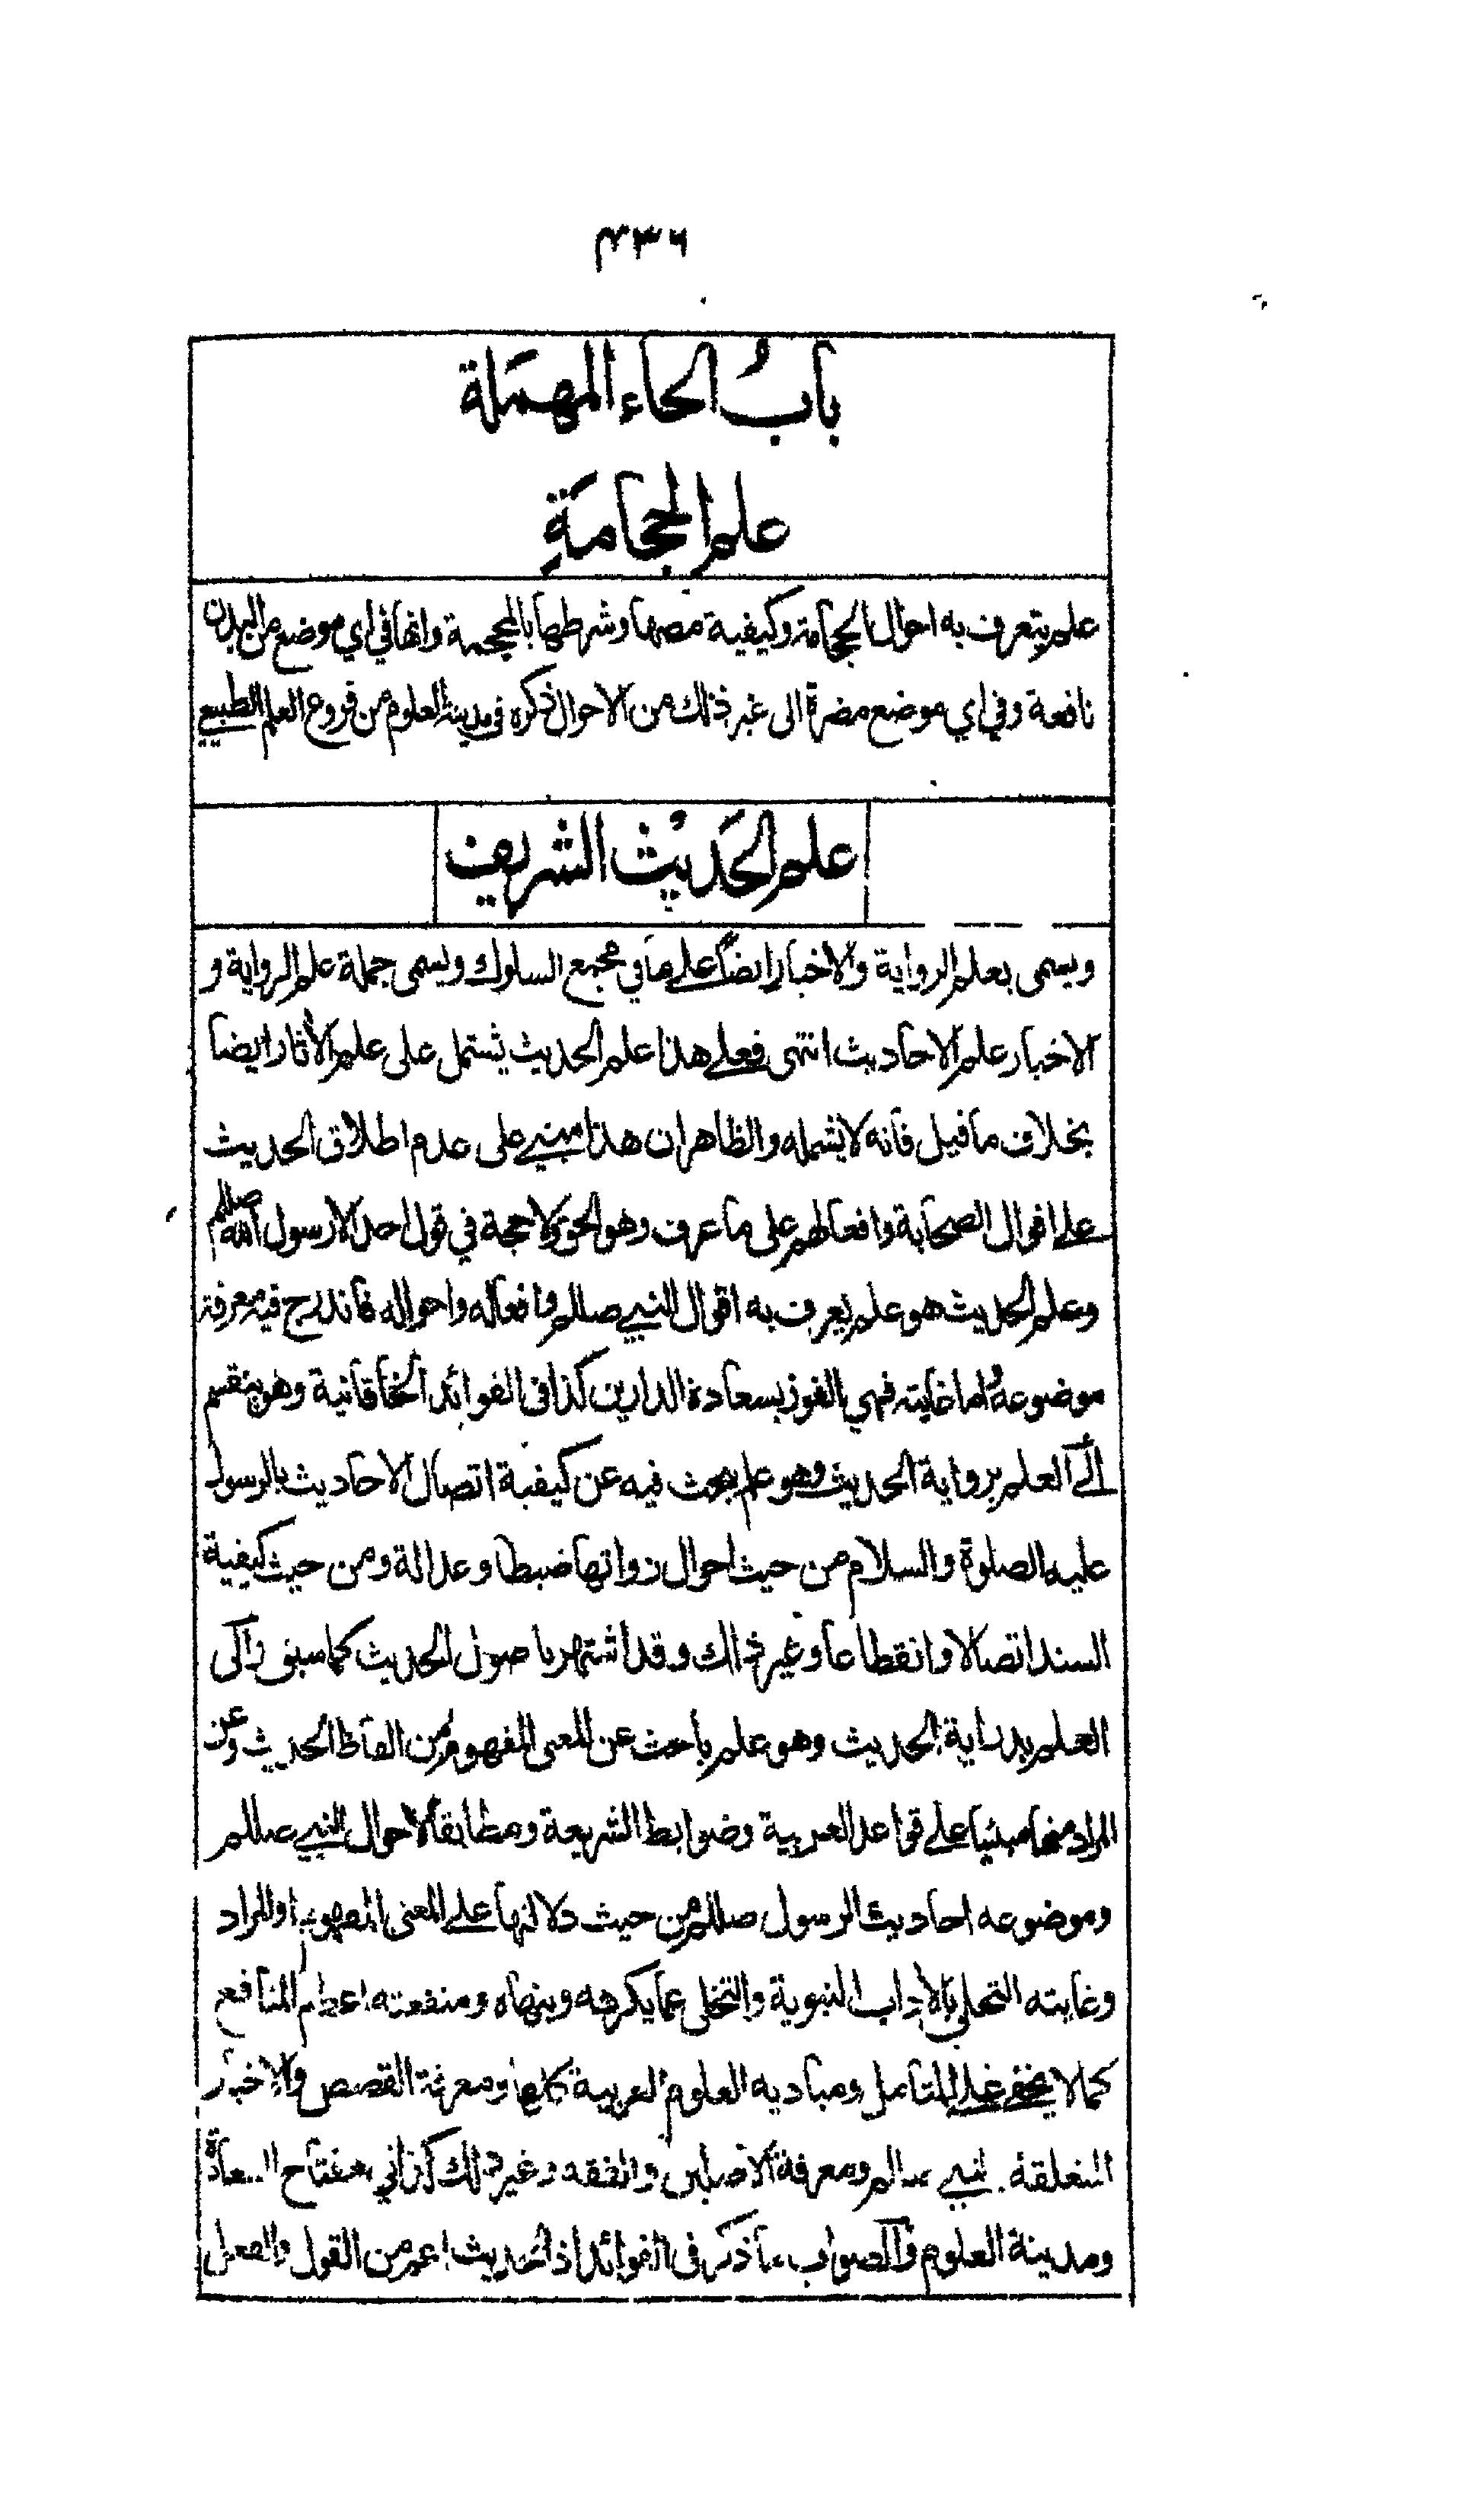 ۴۳۶
باب الحاء المهملة
علم الحجامة
علم يتعرف به احوال الحجامة وكيفية مصها وشرطها بالمحجمة وانها في اي موضع من البدن
نافعة وفي اي موضع مضرة الى غير ذلك من الاحوال ذكره في مدينة العلوم من فروع العلم الطبيعي
علم الحديث الشريف
ويسمى بعلم الرواية والاخبار ايضا على ما في مجمع السلوك ويسمى جملة علم الرواية و
الاخبار علم الاحاديث انتهى فعلى هذا علم الحديث يشتمل على علم الآثار ايضا
بخلاف ما قيل فانه لا يشمله والظاهر ان هذا مبني على عدم اطلاق الحديث
على اقوال الصحابة وافعالهم على ما عرف وهو الحق ولا حجة في قول احد الا رسول الله صللم
وعلم الحديث هو علم يعرف به اقوال النبي صللم وافعاله واحواله فاندرج فيه معرفة
موضوعه اما غايته فهي الفوز بسعادة الدارين كذا في الفوائد الخاقانية وهو ينقسم
الى العلم برواية الحديث وهو علم يبحث فيه عن كيفية اتصال الاحاديث بالرسول
عليه الصلوة والسلام من حيث احوال رواتها ضبطا وعدالة ومن حيث كيفية
السند اتصالا وانقطاعا وغير ذلك وقد اشتهر باصول الحديث كما سبق والى
العلم بدراية الحديث وهو علم باحث عن المعنى المفهوم من الفاظ الحديث وعن
المراد منها مبنيا على قواعد العربية وضوابط الشريعة ومطابقا لاحوال النبي صللم
وموضوعه احاديث الرسول صللم من حيث دلالتها على المعنى المفهوم او المراد
وغايته التحلي بالآداب النبوية والتخلي عما يكرهه وينهاه ومنفعته اعظم المنافع
كما لا يخفى على المتامل ومباديه العلوم العربية كلها ومعرفة القصص والاخبار
المتعلقة بالنبي صللم ومعرفة الاصلين والفقه وغير ذلك كذا في مفتاح السعادة
ومدينة العلوم والصواب ما ذكر في الفوائد اذ الحديث اعم من القول والفعل